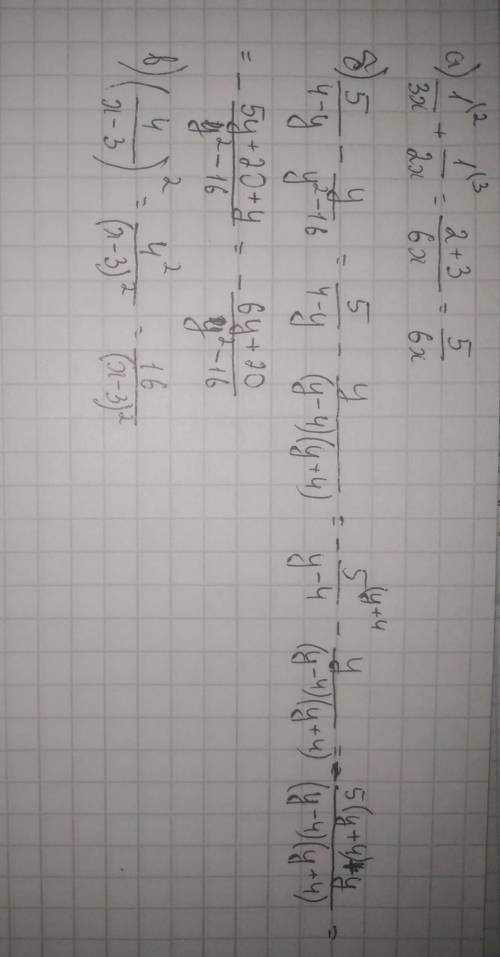 а) 1⁽²/3x + 1⁽³/2x = (2+3)/6x = 5/6x
б) 5/(4-y) - y/(y²-16) = 5/(4-y) - y/((y-4)(y+4)) = - 5⁽y+4/(y-4) - y/((y-4)(y+4)) = - (5(y+4)+y)/((y-4)(y+4)) =
= - (5y+20+y)/(y²-16) = - (6y+20)/(y²-16)
в) (4/(x-3))² = 4²/(x-3)² = 16/(x-3)²